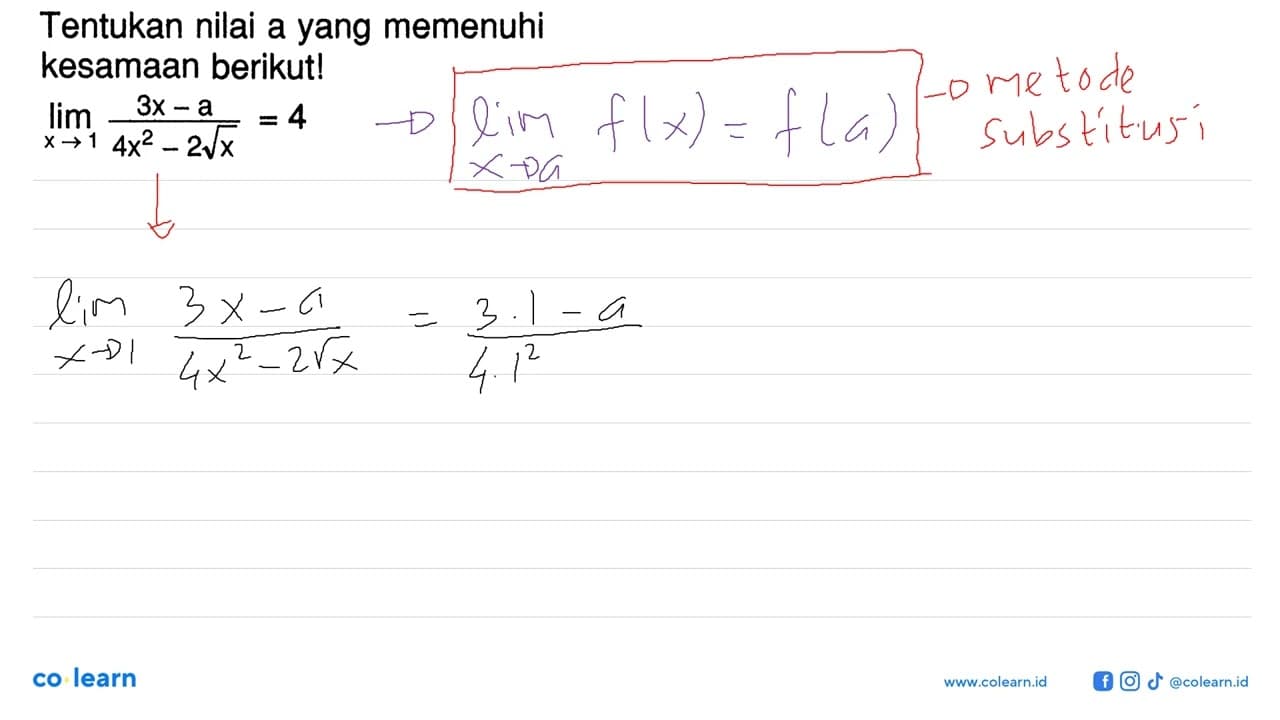 Tentukan nilai a yang memenuhi
kesamaan berikut!
lim x→1 (3x – a)/(4x² – 2√x) = 4
→ lim x→a f(x) = f(a)
→ metode
substitusi
lim x→1 (3x – a)/(4x² – 2√x) = (3.1 – a)/(4.1²
co learn
www.colearn.id
@colearn.id